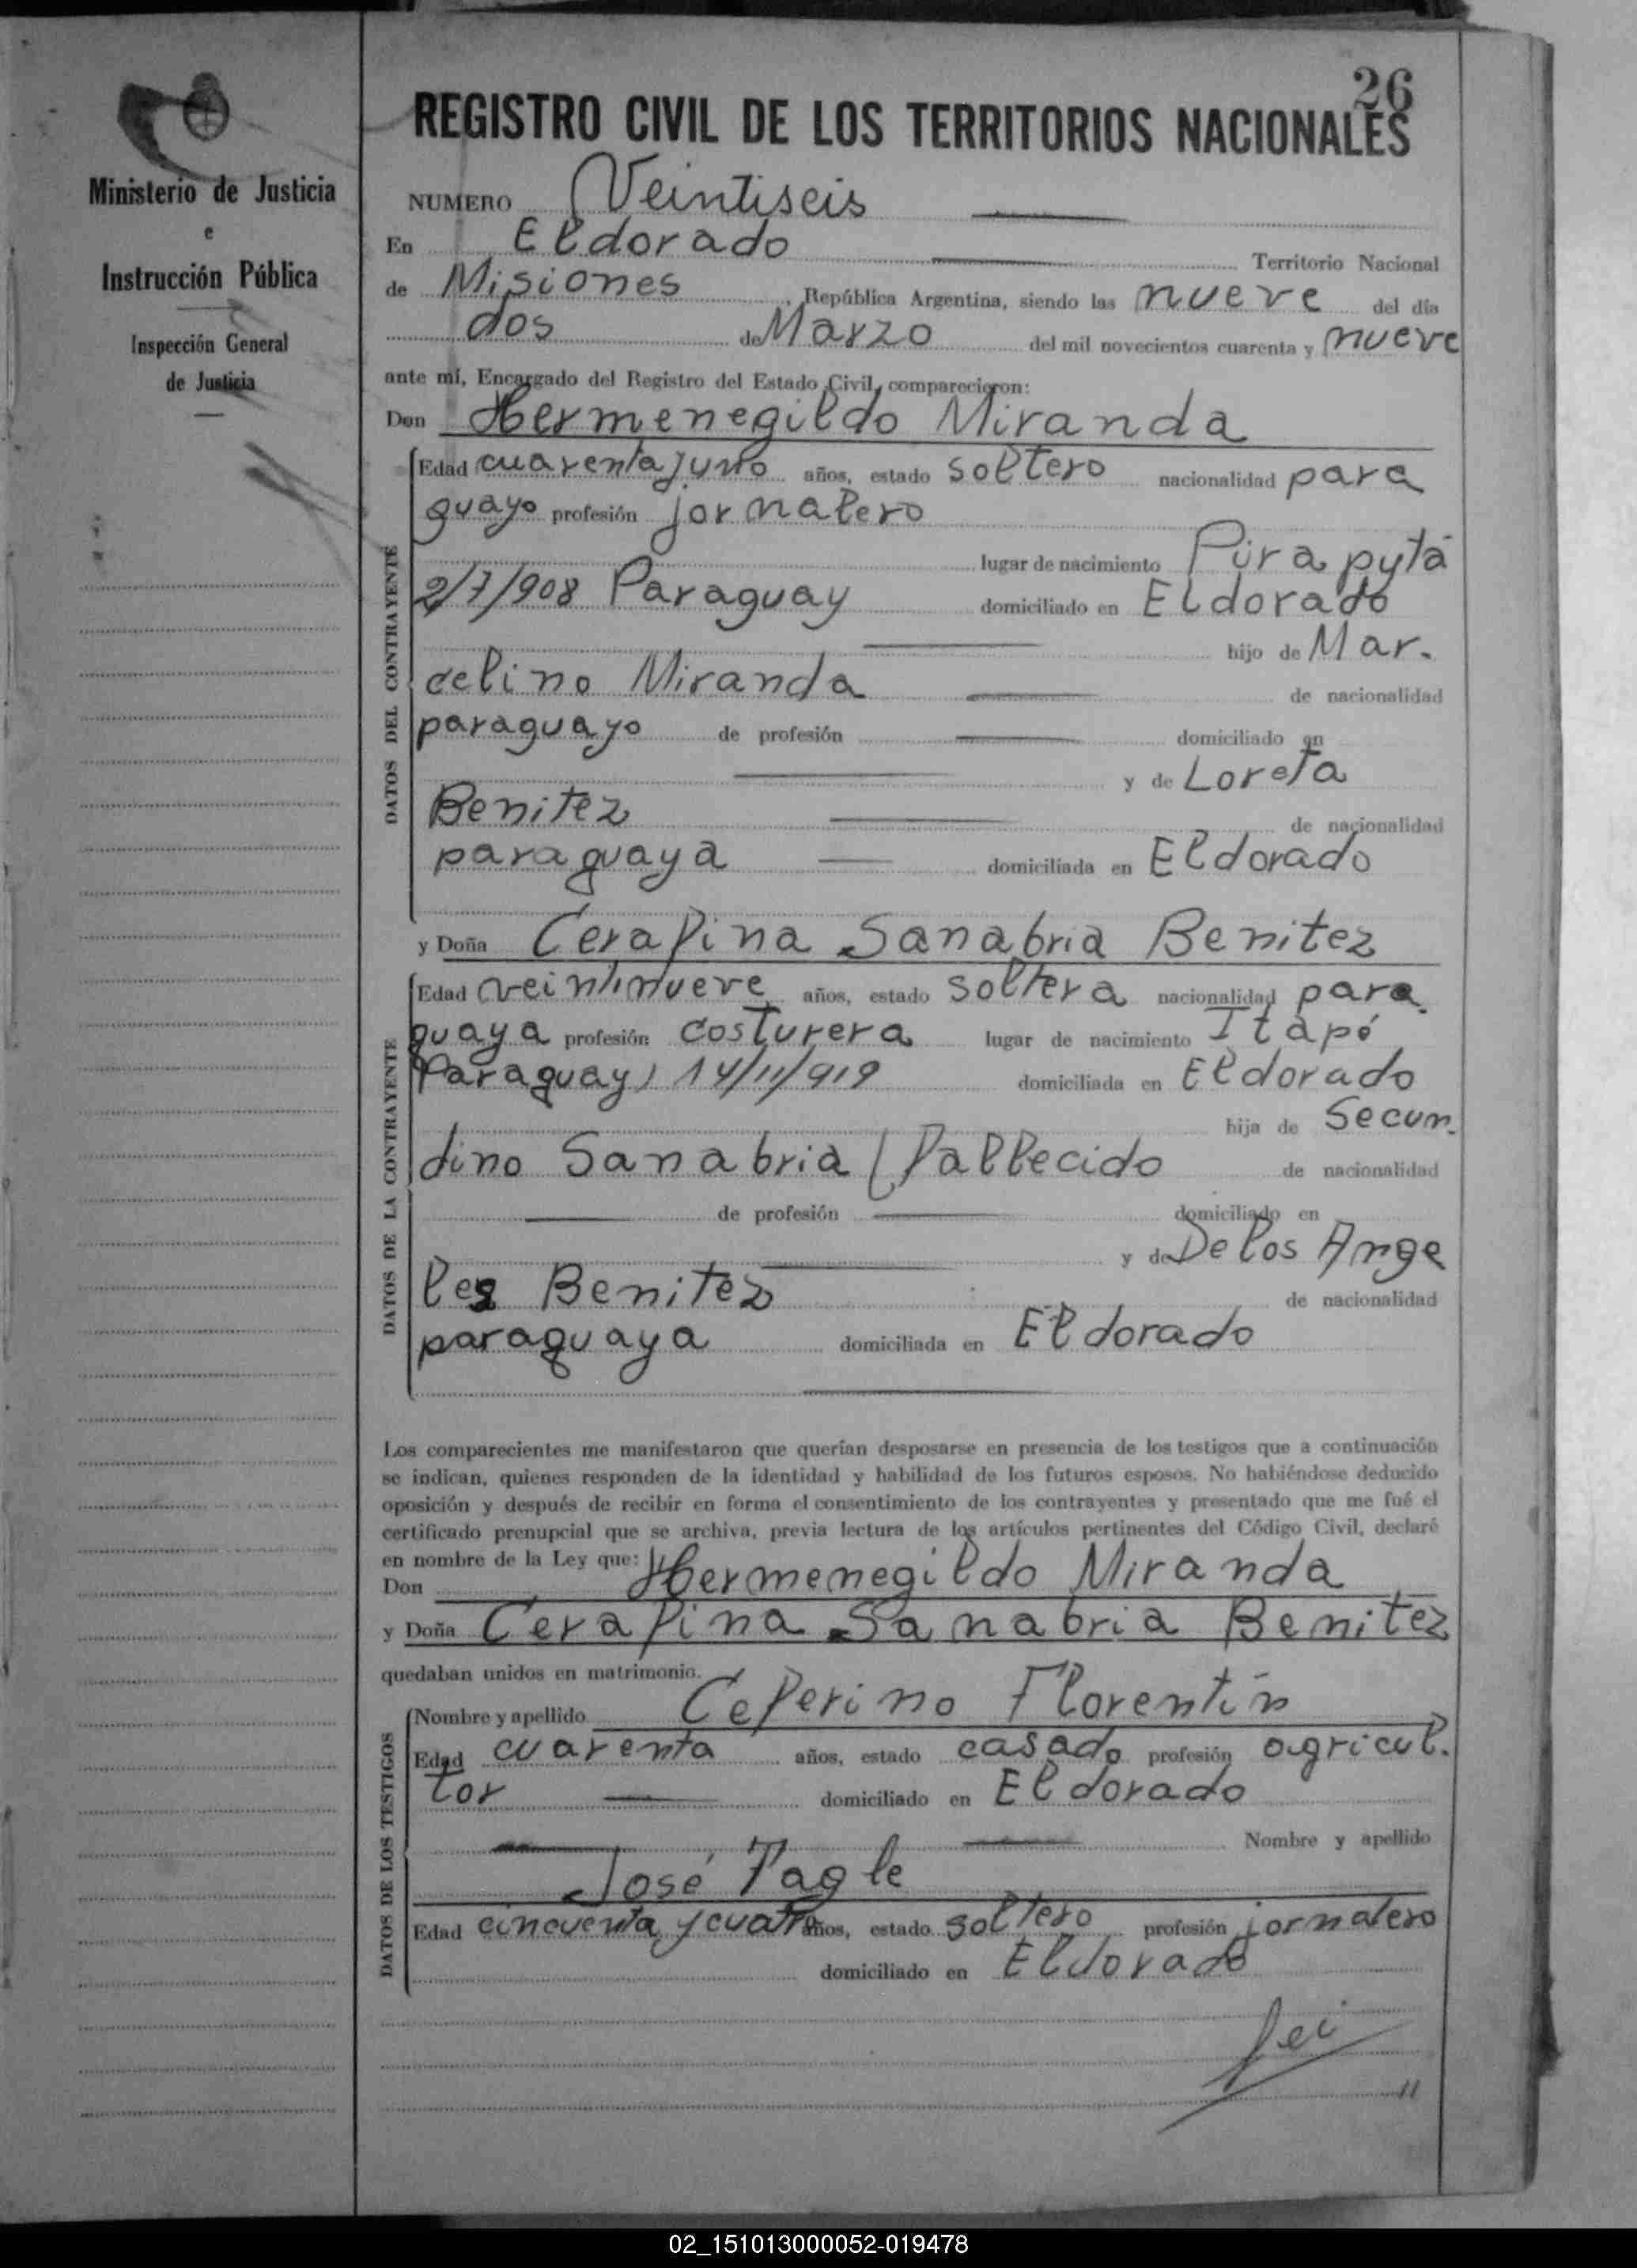 26
Ministerio de Justicia
e
Instrucción Pública
Inspección General
de Justicia
REGISTRO CIVIL DE LOS TERRITORIOS NACIONALES
NUMERO Veintiseis
En Eldorado Territorio Nacional
de Misiones, República Argentina, siendo las nueve del día
dos de Marzo del mil novecientos cuarenta y nueve
ante mí, Encargado del Registro del Estado Civil, comparecieron:
Don Hermenegildo Miranda
DATOS DEL CONTRAYENTE
Edad cuarenta y uno años, estado soltero nacionalidad para
guayo profesión jornalero
lugar de nacimiento Pira pytá
2/7/908 Paraguay domiciliado en Eldorado
hijo de Mar-
celino Miranda de nacionalidad
paraguayo de profesión domiciliado en
y de Loreta
Benitez de nacionalidad
paraguaya domiciliada en Eldorado
y Doña Cerafina Sanabria Benitez
DATOS DE LA CONTRAYENTE
Edad veintinueve años, estado soltera nacionalidad para
guaya profesión costurera lugar de nacimiento Itapé
Paraguay) 14/11/919 domiciliada en Eldorado
hija de Secun-
dino Sanabria (fallecido de nacionalidad
de profesión domiciliado en
y de De los Ange
les Benitez de nacionalidad
paraguaya domiciliada en Eldorado
Los comparecientes me manifestaron que querían desposarse en presencia de los testigos que a continuación
se indican, quienes responden de la identidad y habilidad de los futuros esposos. No habiéndose deducido
oposición y después de recibir en forma el consentimiento de los contrayentes y presentado que me fué el
certificado prenupcial que se archiva, previa lectura de los artículos pertinentes del Código Civil, declaré
en nombre de la Ley que:
Don Hermenegildo Miranda
y Doña Cerafina Sanabria Benitez
quedaban unidos en matrimonio.
DATOS DE LOS TESTIGOS
Nombre y apellido Ceferino Florentín
Edad cuarenta años, estado casado profesión agricul-
tor domiciliado en Eldorado
Nombre y apellido
José Tagle
Edad cincuenta y cuatro años, estado soltero profesión jornalero
domiciliado en Eldorado
02_151013000052-019478